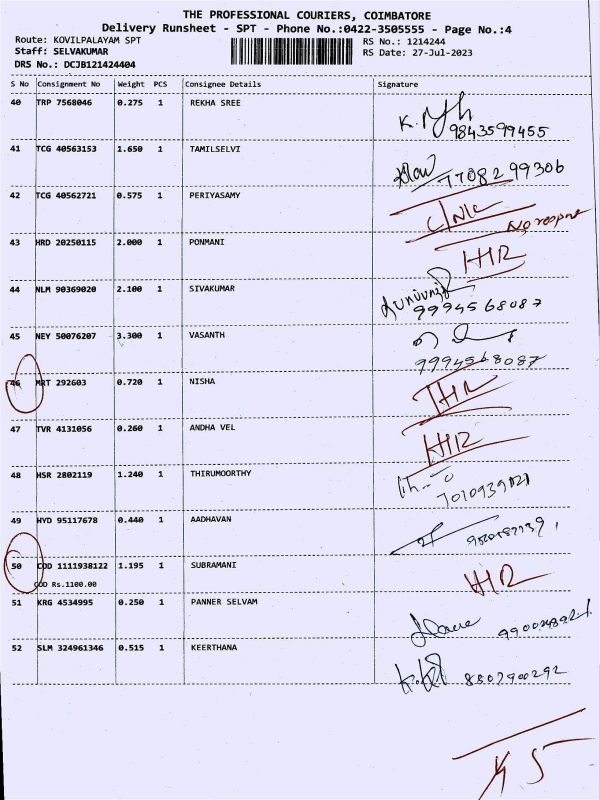 THE PROFESSIONAL COURIERS, COIMBATORE
Delivery Runsheet - SPT - Phone No.:0422-3505555 - Page No.:4
Route: KOVILPALAYAM SPT RS No.: 1214244
Staff: SELVAKUMAR RS Date: 27-Jul-2023
DRS No.: DCJB121424404
S No Consignment No Weight PCS Consignee Details Signature
40 TRP 7568046 0.275 1 REKHA SREE
9843599455
41 TCG 40563153 1.650 1 TAMILSELVI
77082 99306
42 TCG 40562721 0.575 1 PERIYASAMY
No respone
43 HRD 20250115 2.000 1 PONMANI
44 NLM 90369020 2.100 1 SIVAKUMAR
9994568087
45 NEY 50076207 3.300 1 VASANTH
9994568087
46 MRT 292603 0.720 1 NISHA
47 TVR 4131056 0.260 1 ANDHA VEL
48 HSR 2802119 1.240 1 THIRUMOORTHY
49 HYD 95117678 0.440 1 AADHAVAN
50 COD 1111938122 1.195 1 SUBRAMANI
COD Rs.1100.00
51 KRG 4534995 0.250 1 PANNER SELVAM
52 SLM 324961346 0.515 1 KEERTHANA
8807900292